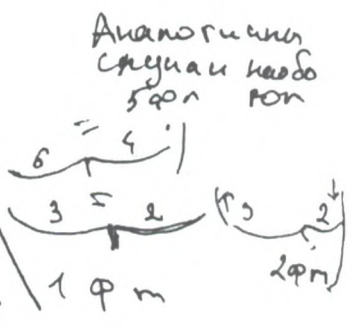 Аналогичны
случаи наобо
5 фол рот
= 6 4
3 = 2 3 2
1 ф т 2 ф т